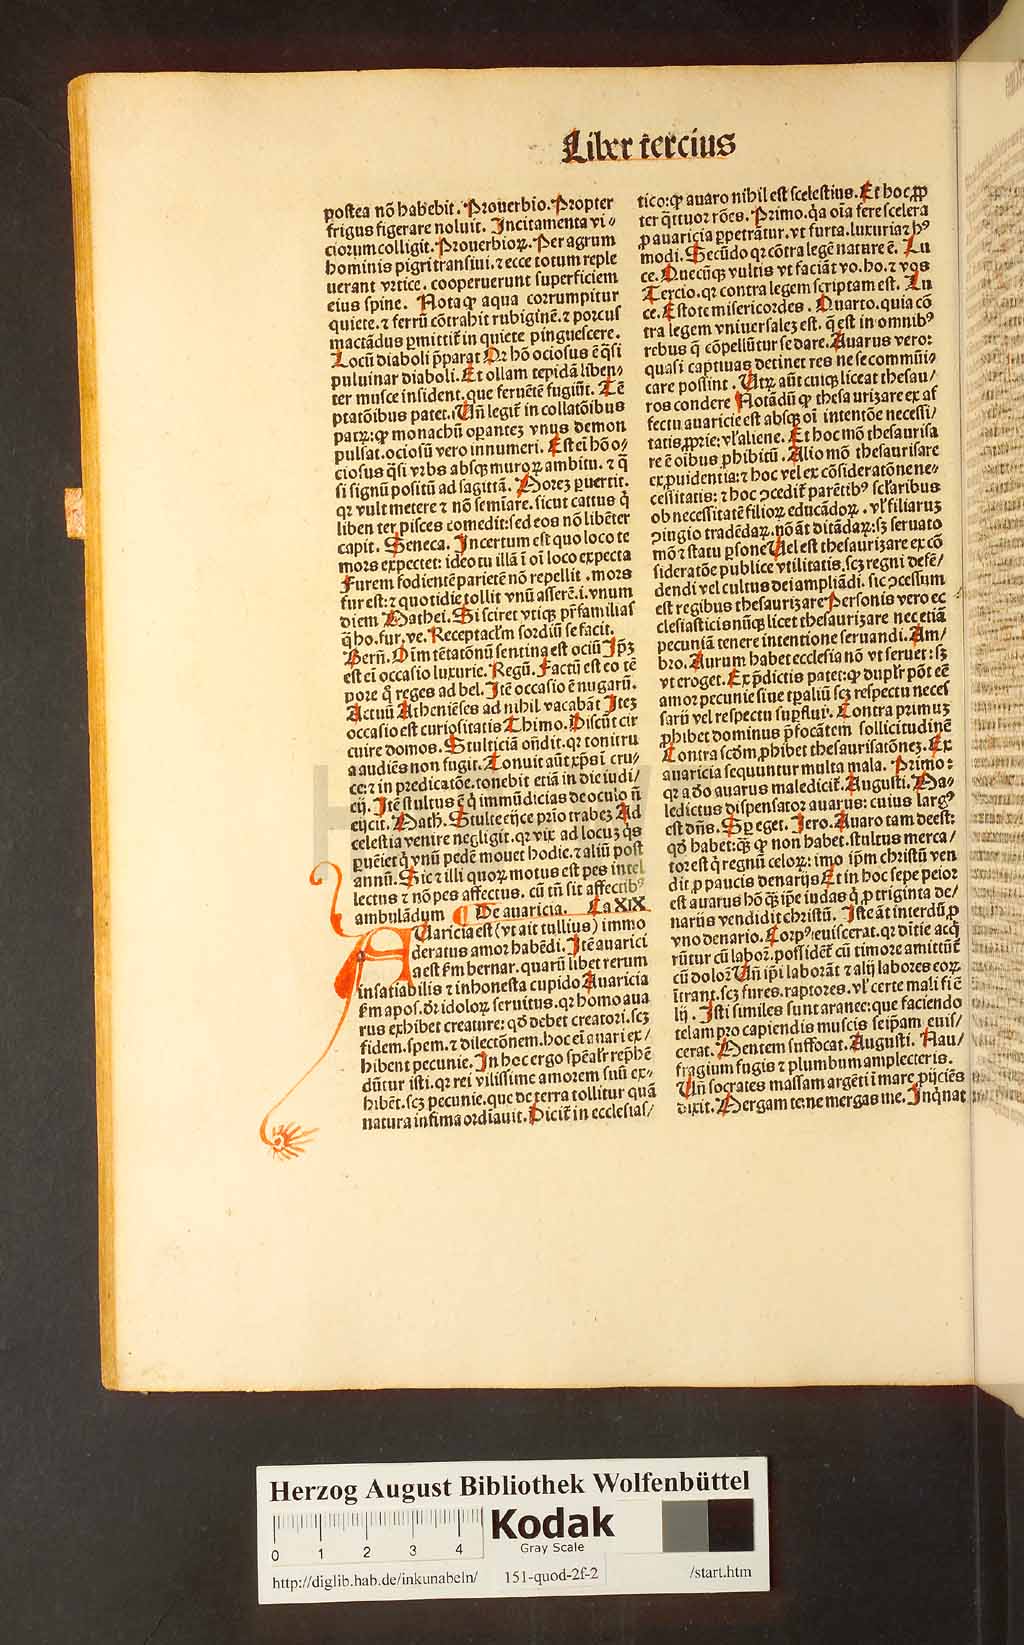 Liber tercius
postea nõ habebit. Prouerbio. Propter
frigus figerare noluit. Incitamenta vi⸗
ciorum colligit. Prouerbioꝝ. Per agrum
hominis pigri transiui. ⁊ ecce totum reple
uerant vrtice. cooperuerunt superficiem
eius spine. Nota ꝙ aqua corrumpitur
quiete. ⁊ ferrũ cõtrahit rubiginẽ. ⁊ porcus
mactãdus ꝑmittit̃ in quiete pinguescere.
Locũ diaboli p̃parat Qꝛ hõ ociosus ẽ q̃si
puluinar diaboli. Et ollam tepidã liben⸗
ter musce insident. que feruẽtẽ fugiũt. Tẽ
ptatõibus patet. Vñ legit̃ in collatõibus
patꝝ: ꝙ monachũ oꝑantez vnus demon
pulsat. ociosũ vero innumeri. Est eĩ hõ o⸗
ciosus q̃si vrbs absqꝫ muroꝝ ambitu. ⁊ q̃
si signũ positũ ad sagittã. Morez ꝑuertit.
qꝛ vult metere ⁊ nõ semĩare. sicut cattus q̇
libenter pisces comedit: sed eos nõ libẽter
capit. Seneca. Incertum est quo loco te
mors expectet: ideo tu illã ĩ oĩ loco expecta
Furem fodientẽ parietẽ nõ repellit. mors
fur est: ⁊ quotidie tollit vnũ asserẽ. i. vnum
diem Mathei. Si sciret vtiqꝫ pr̃familias
q̃ ho. fur. ve. Receptacl̃m sordiũ se facit.
Berñ. Oĩm tẽtatõnũ sentina est ociũ Ip̃ꝫ
est eĩ occasio luxurie. Regũ. Factũ est eo tẽ
pore q̇ reges ad bel. Itẽ occasio ẽ nugarũ.
Actuũ Atheniẽses ad nihil vacabãt Itez
occasio est curiositatis Thimo. Discũt cir
cuire domos. Stulticiã oñdit. qꝛ tonitru
a audiẽs non fugit. Tonuit aũt xp̃s ĩ cru⸗
ce: ⁊ in predicatõe. tonebit etiã in die iudi/
cij. Itẽ stultus ẽ q̇ immũdicias de oculo ñ
eijcit. Math. Stulte eijce prĩo trabeꝫ Ad
celestia venire negligit. qꝛ vix ad locuꝫ q̃s
ꝑueiet q̇ vnũ pedẽ mouet hodie. ⁊ aliũ post
annũ. Sic ⁊ illi quoꝝ motus est pes intel
lectus ⁊ nõ pes affectus. cũ tñ sit affectibꝰ
ambulãdum De auaricia. Ca XIX
AUaricia est (vt ait tullius) immo
deratus amor habẽdi. Itẽ auarici
a est ẜm bernar. quarũ libet rerum
insatiabilis ⁊ inhonesta cupido Auaricia
ẜm apos. dr̃ idoloꝝ seruitus. qꝛ homo aua
rus exhibet creature: qd̃ debet creatori. scꝫ
fidem. spem. ⁊ dilectõnem. hoc eĩ auari ex/
hibent pecunie. In hoc ergo spẽalr̃ rep̃hẽ
dũtur isti. qꝛ rei vilissime amorem suũ ex⸗
hibẽt. scꝫ pecunie. que de terra tollitur quã
natura infima ordiauit. Dicit̃ in ecclesias/
tico: ꝙ auaro nihil est scelestius. Et hoc ꝓp
ter q̃ttuor rões. Primo. q̃a oĩa fere scelera
ꝓ auaricia ꝑpetrãtur. vt furta. luxuria ⁊ hꝰ
modi. Secũdo qꝛ cõtra legẽ nature ẽ. Lu
ce. Quecũqꝫ vultis vt faciãt vo. ho. ⁊ vos
Tercio. qꝛ contra legem scriptam est. Lu
ce. Estote misericordes. Quarto. quia cõ
tra legem vniuersaleꝫ est. q̃ est in omnibꝰ
rebus q̃ cõpellũtur se dare. Auarus vero:
quasi captiuas detinet res ne se commũi⸗
care possint. Utꝝ aũt cuiqꝫ liceat thesau/
ros condere Notãdũ ꝙ thesaurizare ex af
fectu auaricie est absqꝫ oĩ intentõe necessi/
tatis ꝓprie: vl̃ aliene. Et hoc mõ thesaurisa
re ẽ oĩbus ꝓhibitũ. Alio mõ thesaurisare
ex ꝓuidentia: ⁊ hoc vel ex cõsideratõne ne⸗
cessitatis: ⁊ hoc ↄcedit̃ parẽtibꝰ scl̃aribus
ob necessitatẽ filioꝝ educãdoꝝ. vl̃ filiaruꝫ
ↄiugio tradẽdaꝝ. nõ ãt ditãdaꝝ: sꝫ seruato
mõ ⁊ statu ꝑsone Uel est thesaurizare ex cõ
sideratõe publice vtilitatis. scꝫ regni defẽ/
dendi vel cultus dei ampliãdi. sic ↄcessum
est regibus thesaurizare Personis vero ec
clesiasticis nũqꝫ licet thesaurizare nec etiã
pecuniã tenere intentione seruandi. Am/
bro. Aurum habet ecclesia nõ vt seruet: sꝫ
vt eroget. Ex p̃dictis patet: ꝙ duplr̃ põt eẽ
amor pecunie siue tꝑaliũ scꝫ respectu neces
sarij vel respectu suꝑflui. Contra primuꝫ
ꝓhibet dominus p̃focãtem sollicitudinẽ
Contra scd̃m ꝓhibet thesaurisatõneꝫ. Ex
auaricia sequuntur multa mala. Primo:
qꝛ a deo auarus maledicit̃. Augusti. Ma⸗
ledictus dispensator auarus: cuius largꝰ
est dñs. Sꝑ eget. Jero. Auaro tam deest:
qd̃ habet: qꝫ ꝙ non habet. stultus merca/
tor est q̇ regnũ celoꝝ: imo ip̃m christũ ven
dit ꝓ paucis denarijs Et in hoc sepe peior
est auarus hõ qꝫ ip̃e iudas q̇ ꝓ triginta de/
narijs vendidit christũ. Iste ãt interdũ ꝓ
vno denario. Corpꝰ euiscerat. qꝛ ditie acq̇
rũtur cũ labor. possidẽt̃ cũ timore amittũt̃
cũ doloꝛ Uñ ip̃i laborãt ⁊ alij labores eoꝝ
ĩtrant. scꝫ fures. raptores. vl̃ certe mali fi ẽ
lij. Isti similes sunt aranee: que faciendo
telam pro capiendis muscis seip̃am euis/
cerat. Mentem suffocat. Augusti. Nau/
fragium fugis ⁊ plumbum amplecteris.
Uñ socrates massam argẽti ĩ mare ꝓijciẽs
dixit. Mergam te: ne mergas me. Inq̇nat
Herzog August Bibliothek Wolfenbüttel
0 1 2 3 4
Kodak
Gray Scale
http://diglib.hab.de/inkunabeln/ 151-quod-2f-2 /start.htm